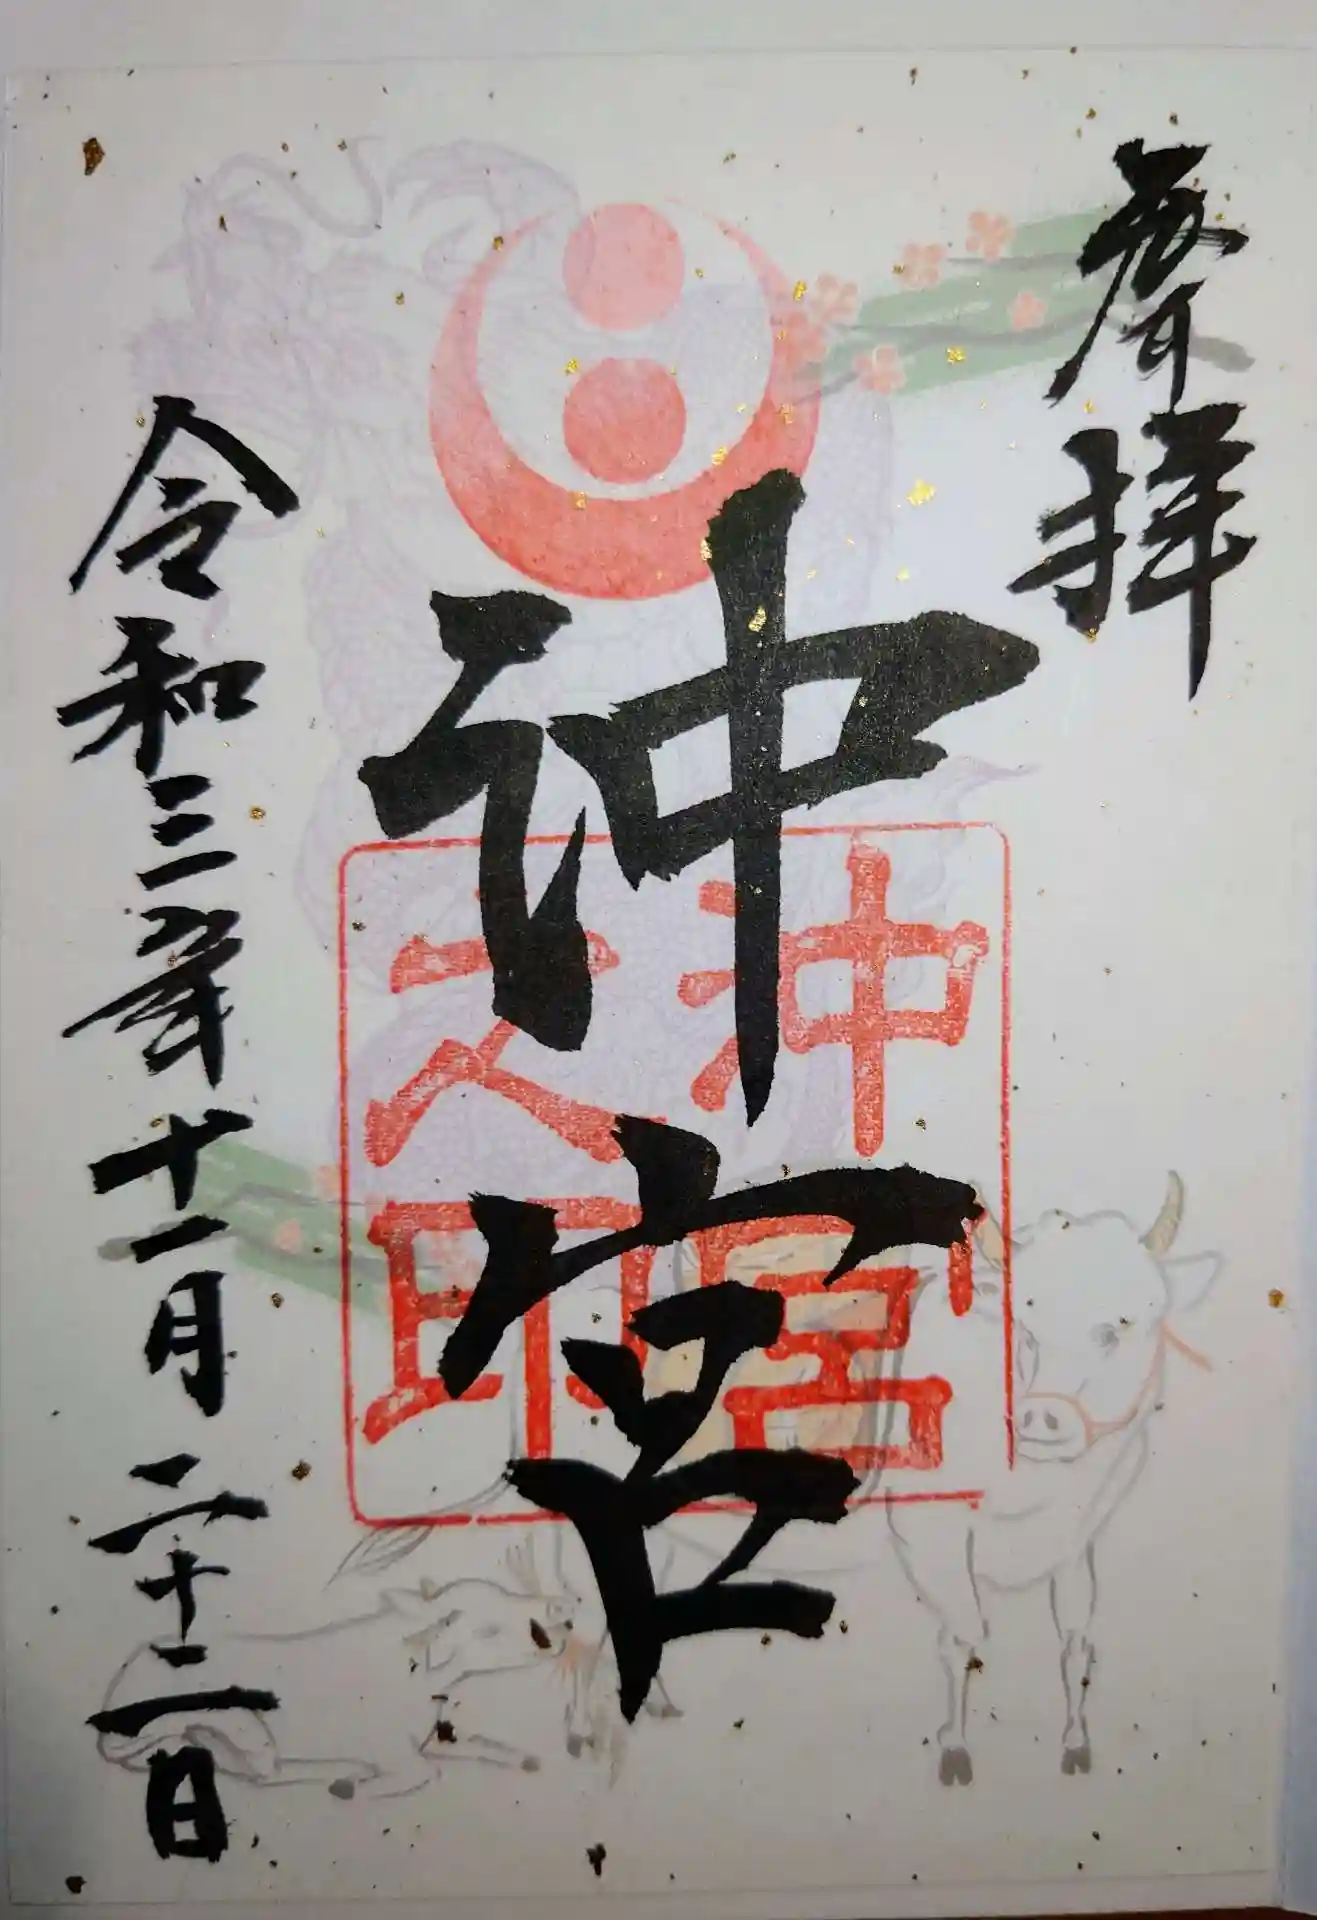 奉拝
沖宮
沖宮
之印
令和三年十一月二十二日